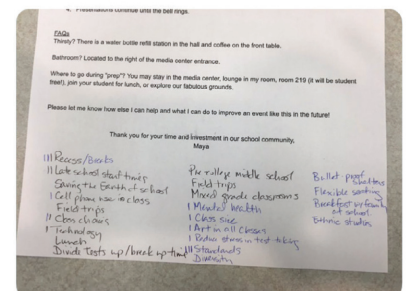 4. Presentations continue until the bell rings.
FAQs
Thirsty? There is a water bottle refill station in the hall and coffee on the front table.
Bathroom? Located to the right of the media center entrance.
Where to go during "prep"? You may stay in the media center, lounge in my room, room 219 (it will be student
free!), join your student for lunch, or explore our fabulous grounds.
Please let me know how else I can help and what I can do to improve an event like this in the future!
Thank you for your time and investment in our school community,
Maya
III Recess/Breaks
II Late school start times
Saving the Earth @ school
I Cell phone use in class
Field trips
II Class choices
I Technology
Lunch
Divide Tests up/break up time
Pre college middle school
Field trips
Mixed grade classrooms
I Mental health
I Class size
I Art in all classes
I Reduce stress in test taking
III Standards
Diversity
Bullet proof shelters
Flexible seating
Breakfast
of school
Ethnic studies